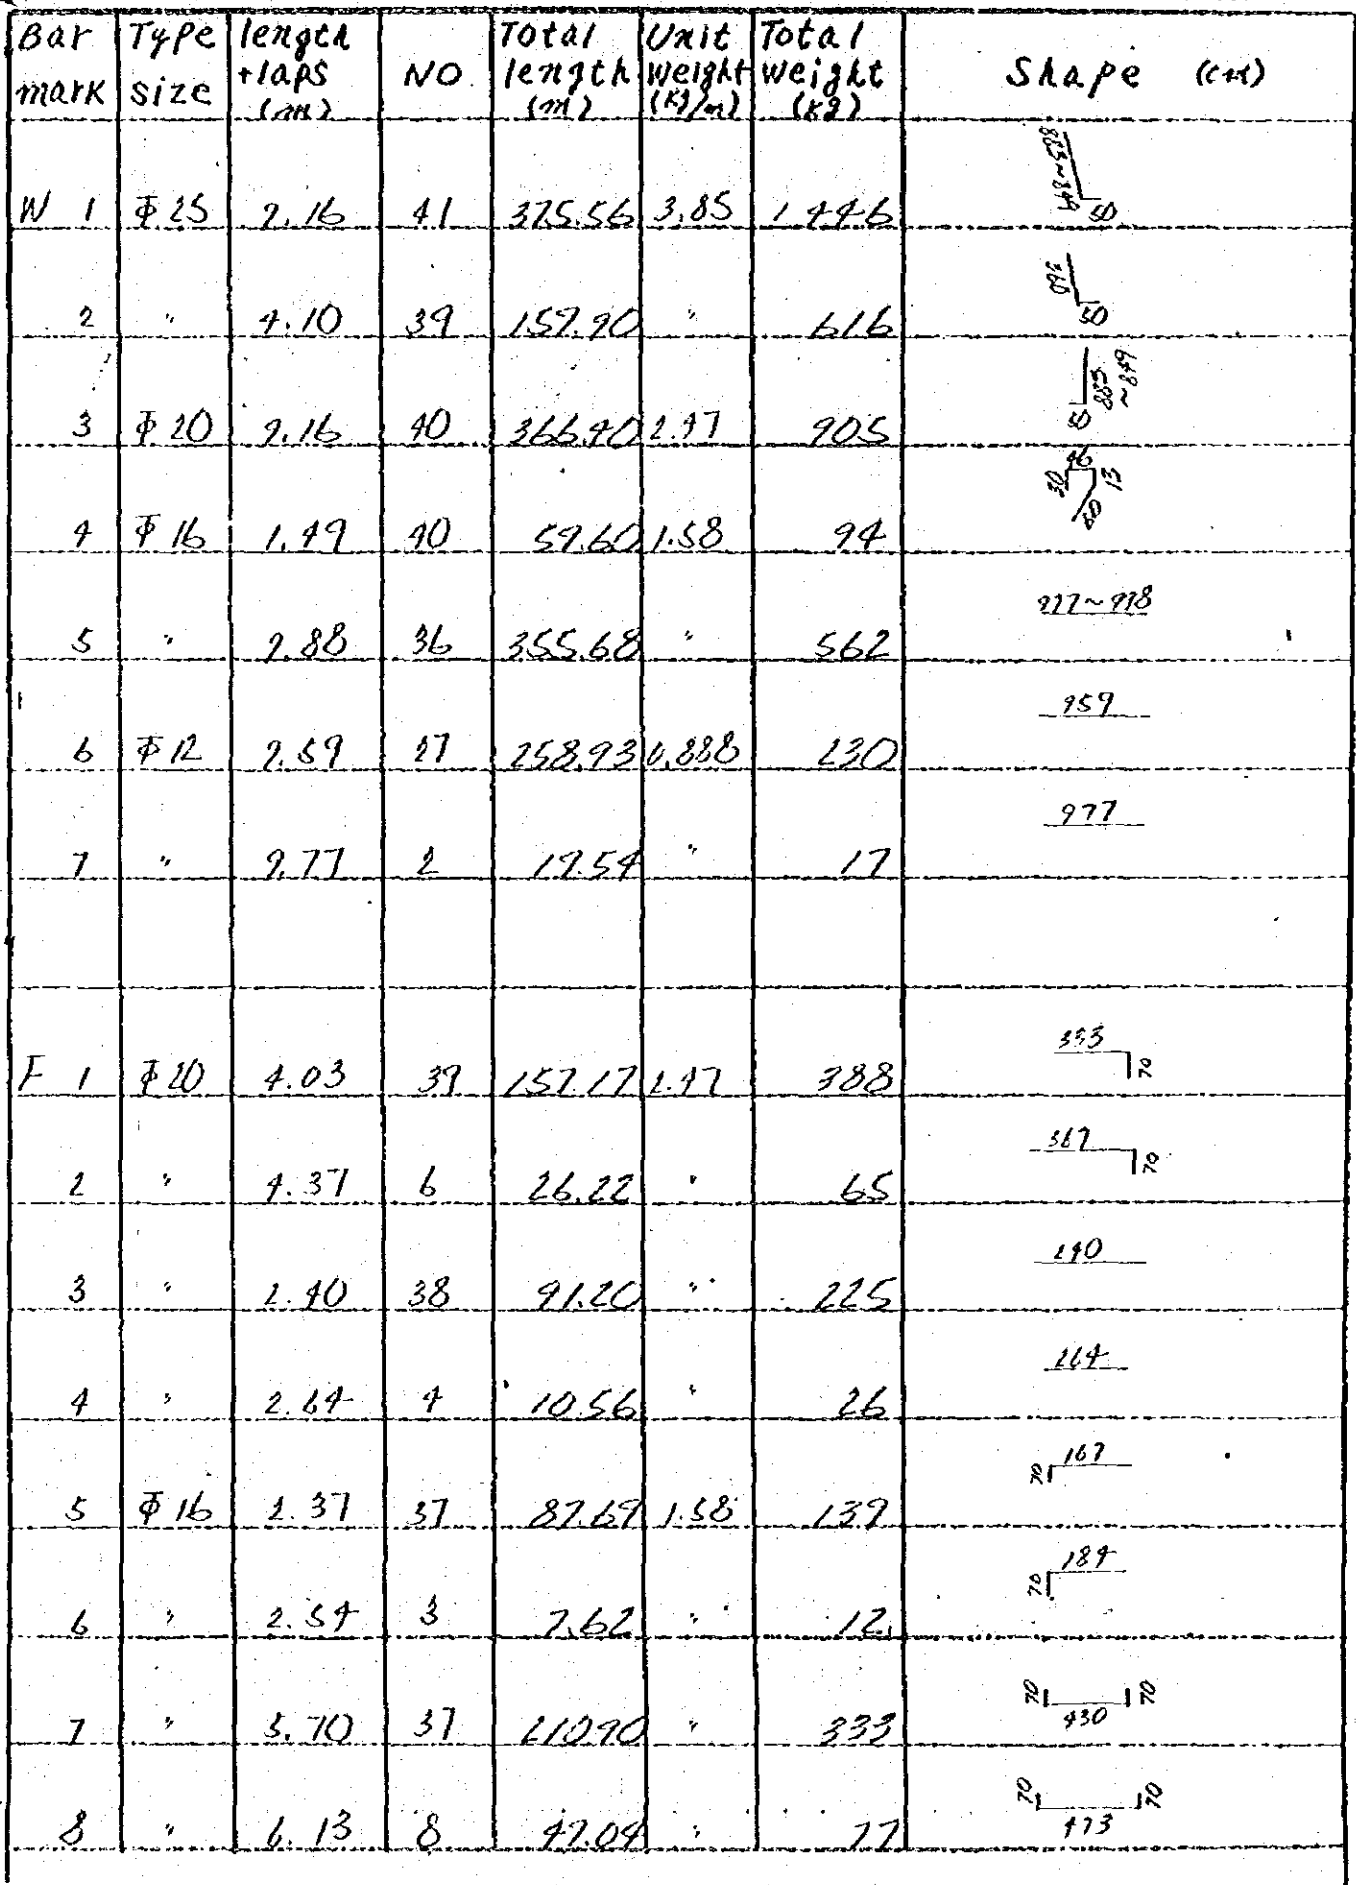 Bar mark Type size length +laps (m) NO Total length (m) Unit weight (kg/m) Total weight (kg) Shape (cm)
W 1 Φ25 9.16 41 375.56 3.85 1446 883~849 50
2 " 4.10 39 159.90 " 616 360 50
3 Φ20 9.16 40 366.40 2.47 905 50 883 ~849
4 Φ16 1.49 40 59.60 1.58 94 30 46 13 60
5 " 9.88 36 355.68 " 562 977~998
6 Φ12 9.59 27 258.93 0.888 230 959
7 " 9.77 2 19.54 " 17 977
F 1 Φ20 4.03 39 157.17 2.47 388 333 70
2 " 4.37 6 26.22 " 65 367 70
3 " 2.40 38 91.20 " 225 240
4 " 2.64 4 10.56 " 26 264
5 Φ16 2.37 37 87.69 1.58 139 70 167
6 " 2.54 3 7.62 " 12 70 184
7 " 5.70 37 210.90 " 333 70 430 70
8 " 6.13 8 49.04 " 77 70 473 70